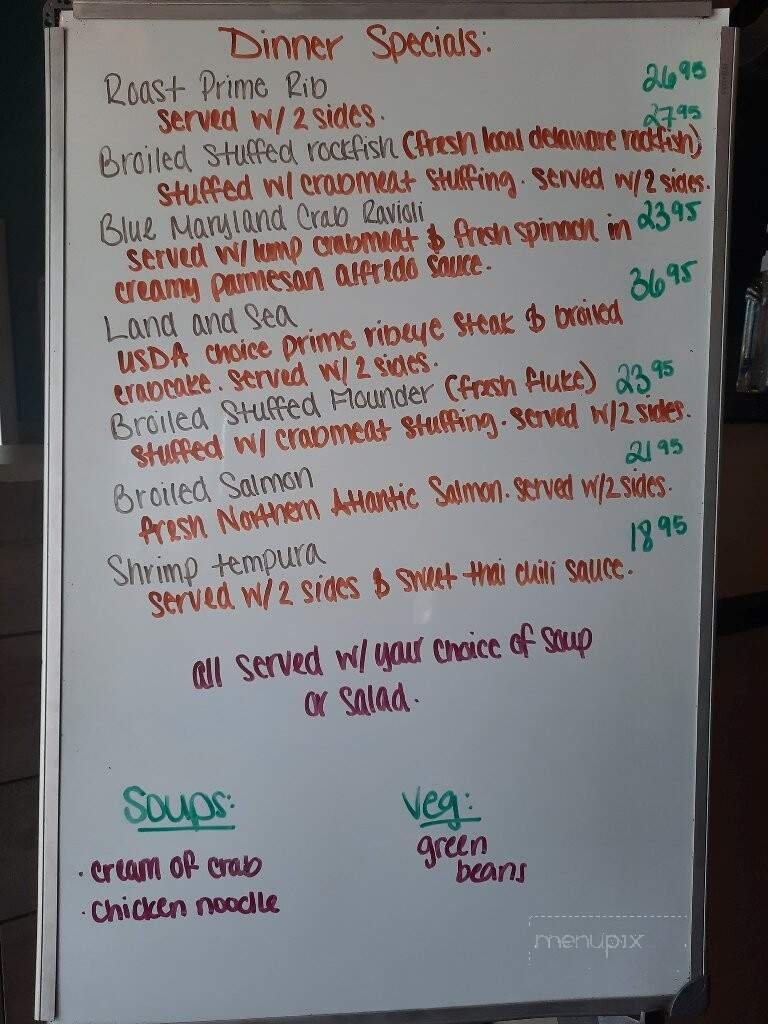 Dinner Specials:
Roast Prime Rib 26 95
served w/ 2 sides. 27 95
Broiled Stuffed rockfish (fresh local delaware rockfish)
stuffed w/ crabmeat stuffing. served w/ 2 sides.
Blue Maryland Crab Ravioli 23 95
served w/ lump crabmeat & fresh spinach in
creamy parmesan alfredo sauce. 36 95
Land and Sea
USDA choice prime ribeye steak & broiled
crabcake. served w/ 2 sides.
Broiled Stuffed Flounder (fresh fluke) 23 95
stuffed w/ crabmeat stuffing. served w/ 2 sides.
21 95
Broiled Salmon
fresh Northern Atlantic Salmon. served w/ 2 sides.
18 95
Shrimp tempura
served w/ 2 sides & sweet thai chili sauce.
all served w/ your choice of soup
or salad.
Soups: Veg:
• cream of crab green
beans
• chicken noodle
menupix